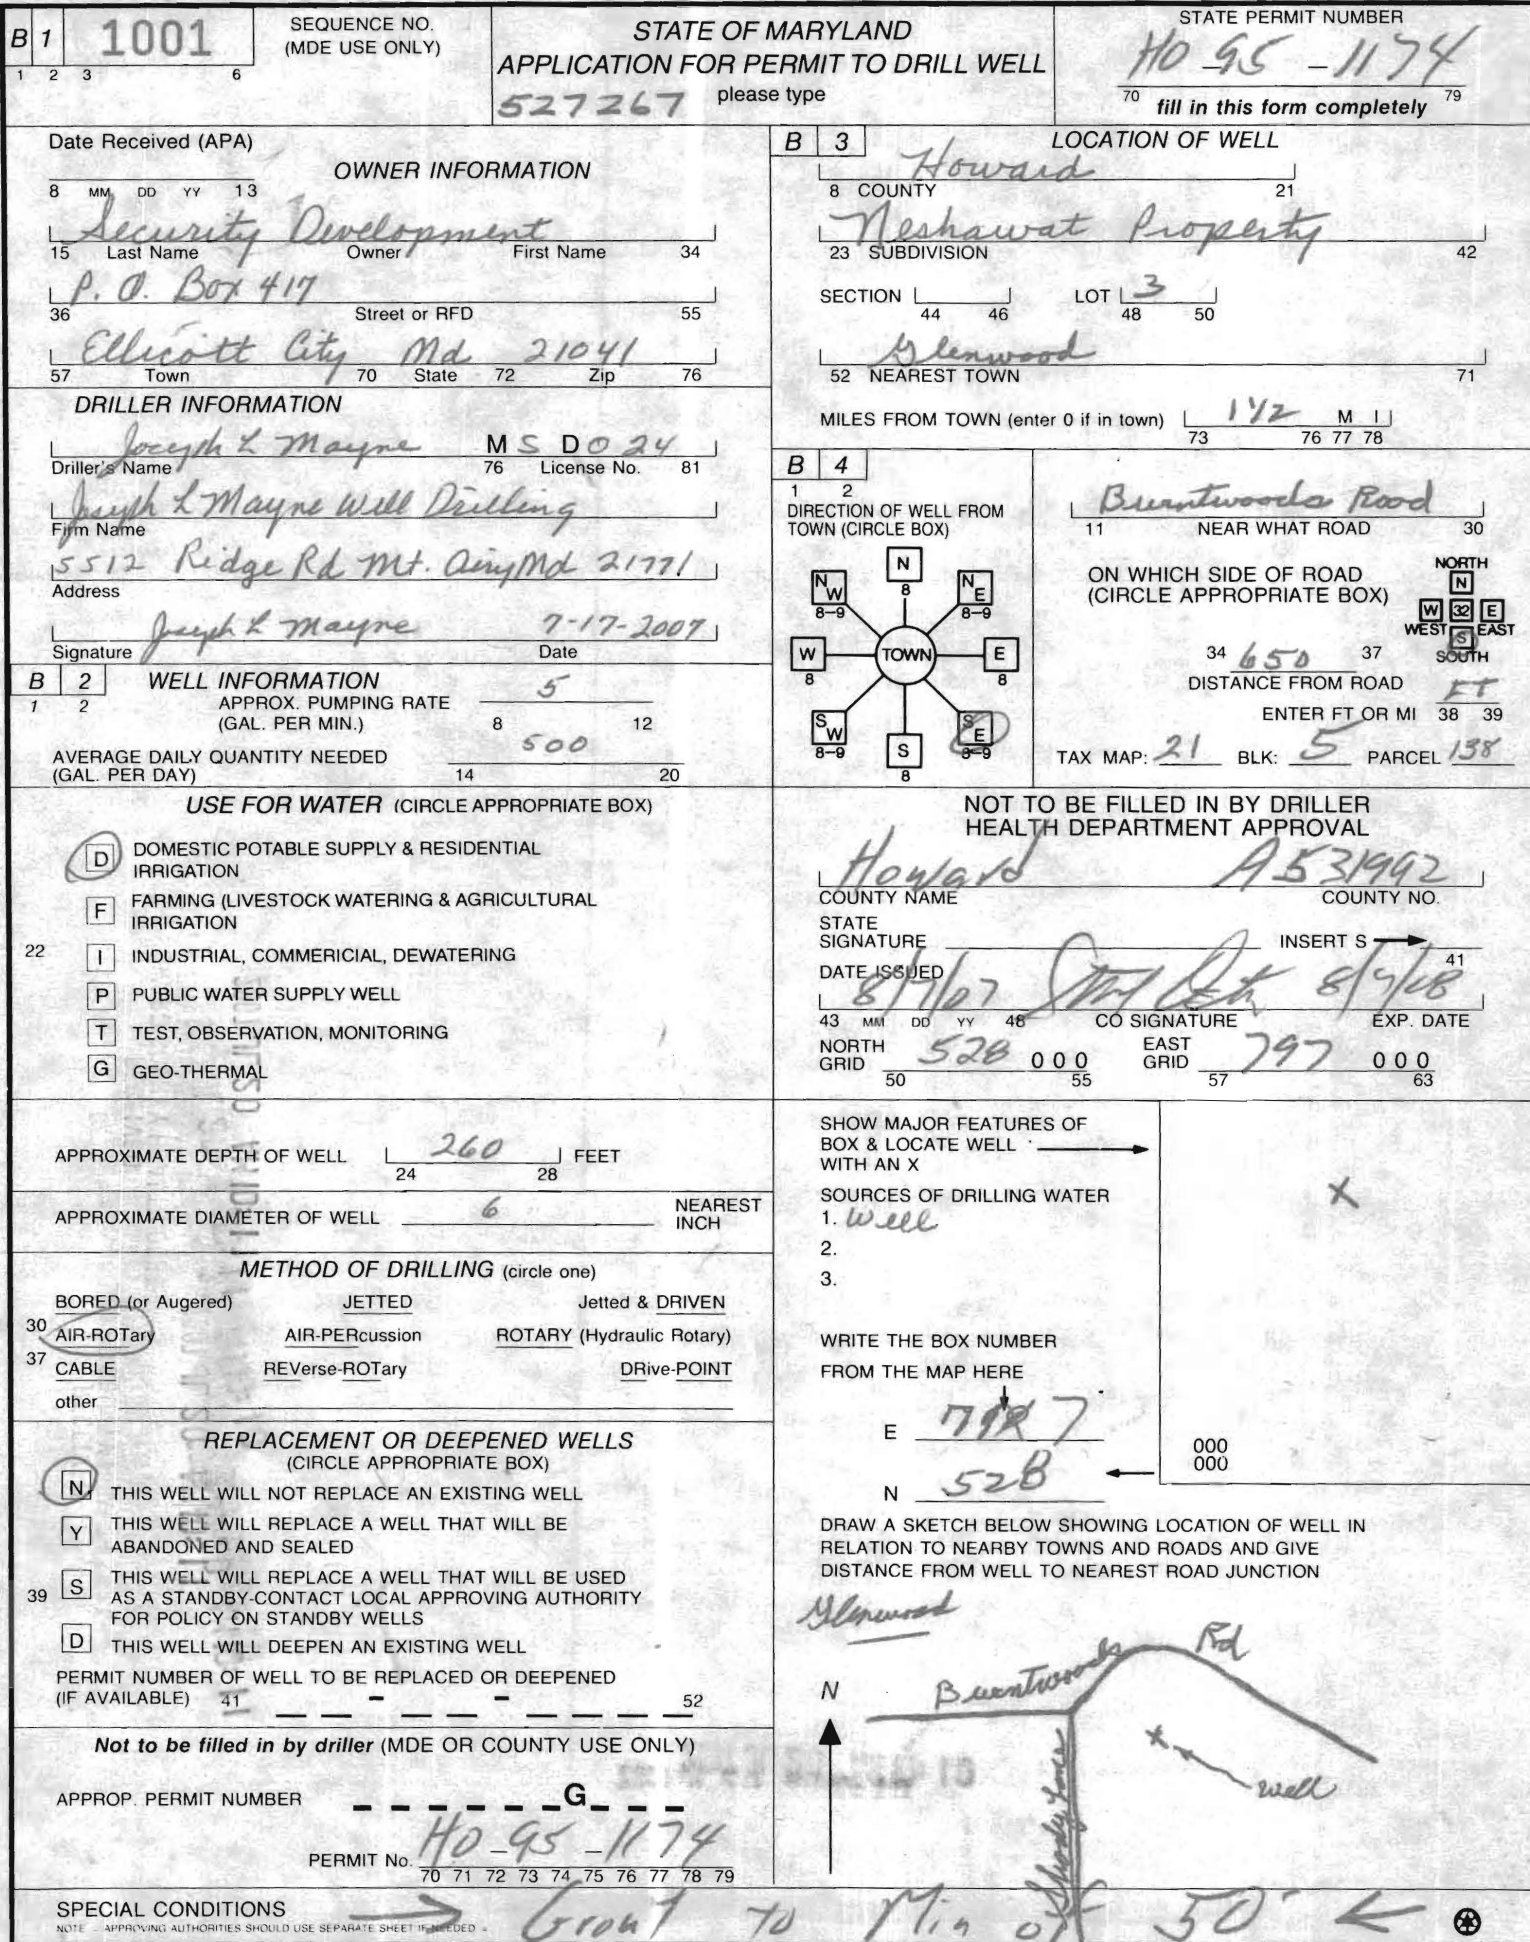 B 1 1001
1 2 3 6
SEQUENCE NO.
(MDE USE ONLY)
STATE OF MARYLAND
APPLICATION FOR PERMIT TO DRILL WELL
527267 please type
STATE PERMIT NUMBER
HO-95-1174
70 fill in this form completely 79
Date Received (APA)
8 MM DD YY 13
OWNER INFORMATION
Security Development
15 Last Name Owner First Name 34
P. O. Box 417
36 Street or RFD 55
Ellicott City Md 21041
57 Town 70 State 72 Zip 76
DRILLER INFORMATION
Joseph L Mayne M S D 0 24
Driller's Name 76 License No. 81
Joseph L Mayne Well Drilling
Firm Name
5512 Ridge Rd Mt. Airy Md 21771
Address
Joseph L Mayne 7-17-2007
Signature Date
B 2 WELL INFORMATION
1 2
APPROX. PUMPING RATE 5
(GAL. PER MIN.) 8 12
AVERAGE DAILY QUANTITY NEEDED 500
(GAL. PER DAY) 14 20
USE FOR WATER (CIRCLE APPROPRIATE BOX)
D DOMESTIC POTABLE SUPPLY & RESIDENTIAL
IRRIGATION
F FARMING (LIVESTOCK WATERING & AGRICULTURAL
IRRIGATION
22 I INDUSTRIAL, COMMERICIAL, DEWATERING
P PUBLIC WATER SUPPLY WELL
T TEST, OBSERVATION, MONITORING
G GEO-THERMAL
APPROXIMATE DEPTH OF WELL 260 FEET
24 28
APPROXIMATE DIAMETER OF WELL 6 NEAREST
INCH
METHOD OF DRILLING (circle one)
BORED (or Augered) JETTED Jetted & DRIVEN
30 AIR-ROTary AIR-PERcussion ROTARY (Hydraulic Rotary)
37 CABLE REVerse-ROTary DRive-POINT
other
REPLACEMENT OR DEEPENED WELLS
(CIRCLE APPROPRIATE BOX)
N THIS WELL WILL NOT REPLACE AN EXISTING WELL
Y THIS WELL WILL REPLACE A WELL THAT WILL BE
ABANDONED AND SEALED
39 S THIS WELL WILL REPLACE A WELL THAT WILL BE USED
AS A STANDBY-CONTACT LOCAL APPROVING AUTHORITY
FOR POLICY ON STANDBY WELLS
D THIS WELL WILL DEEPEN AN EXISTING WELL
PERMIT NUMBER OF WELL TO BE REPLACED OR DEEPENED
(IF AVAILABLE) 41 - - 52
Not to be filled in by driller (MDE OR COUNTY USE ONLY)
APPROP. PERMIT NUMBER G
PERMIT No. HO-95-1174
70 71 72 73 74 75 76 77 78 79
B 3 LOCATION OF WELL
Howard
8 COUNTY 21
Neshawat Property
23 SUBDIVISION 42
SECTION LOT 3
44 46 48 50
Glenwood
52 NEAREST TOWN 71
MILES FROM TOWN (enter 0 if in town) 1 1/2 M I
73 76 77 78
B 4
1 2
DIRECTION OF WELL FROM
TOWN (CIRCLE BOX)
N
8
NW NE
8-9 8-9
W TOWN E
8 8
SW S SE
8-9 8 8-9
Burntwoods Road
11 NEAR WHAT ROAD 30
ON WHICH SIDE OF ROAD
(CIRCLE APPROPRIATE BOX)
NORTH
N
W 32 E
WEST S EAST
SOUTH
34 650 37
DISTANCE FROM ROAD FT
ENTER FT OR MI 38 39
TAX MAP: 21 BLK: 5 PARCEL 138
NOT TO BE FILLED IN BY DRILLER
HEALTH DEPARTMENT APPROVAL
Howard A531992
COUNTY NAME COUNTY NO.
STATE
SIGNATURE INSERT S
41
DATE ISSUED
8/9/07 8/9/08
43 MM DD YY 48 CO SIGNATURE EXP. DATE
NORTH
GRID 528 000 EAST
GRID 797 000
50 55 57 63
SHOW MAJOR FEATURES OF
BOX & LOCATE WELL
WITH AN X
X
SOURCES OF DRILLING WATER
1. Well
2.
3.
WRITE THE BOX NUMBER
FROM THE MAP HERE
E 797
N 528
000
000
DRAW A SKETCH BELOW SHOWING LOCATION OF WELL IN
RELATION TO NEARBY TOWNS AND ROADS AND GIVE
DISTANCE FROM WELL TO NEAREST ROAD JUNCTION
Glenwood
N Burntwoods Rd
X well
Shady Lane
SPECIAL CONDITIONS
NOTE - APPROVING AUTHORITIES SHOULD USE SEPARATE SHEET IF NEEDED -
Grout to Min of 50'